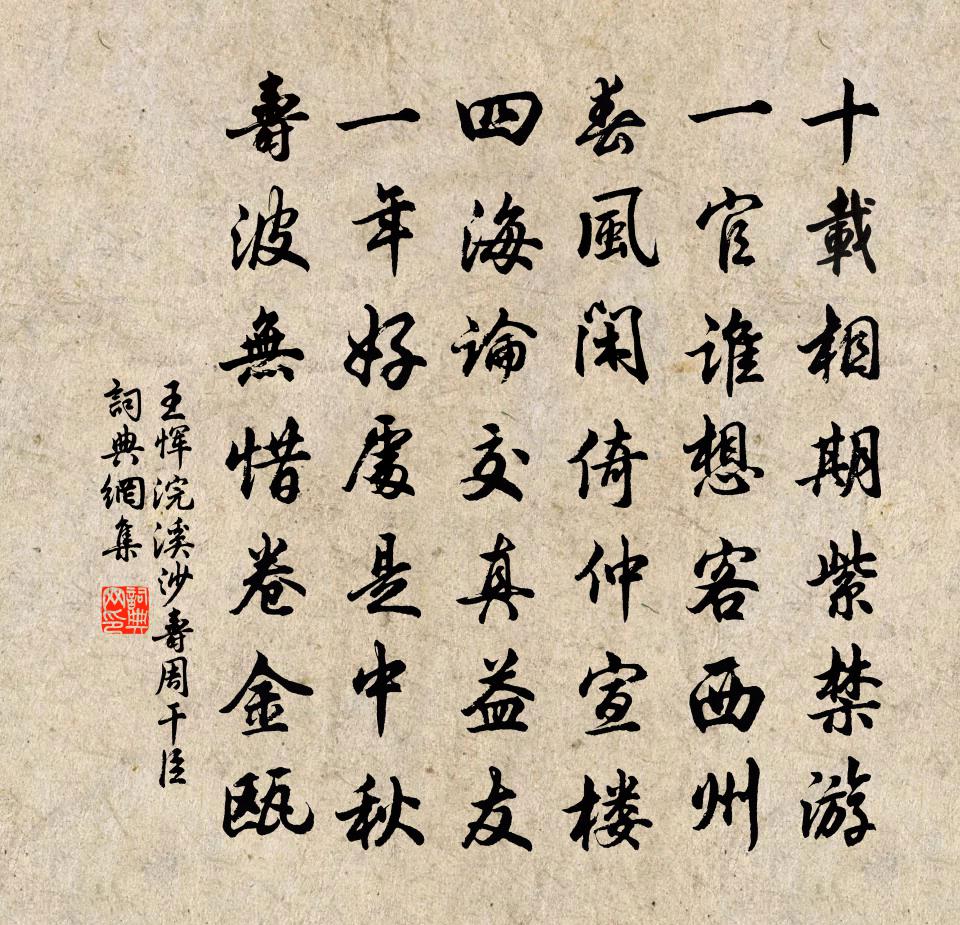 十載相期紫禁游
一官誰想客西州
春風閑倚仲宣楼
四海論交真益友
一年好處是中秋
壽波無惜卷金甌
王恽浣溪沙壽周干臣
詞典網集
詞典网印